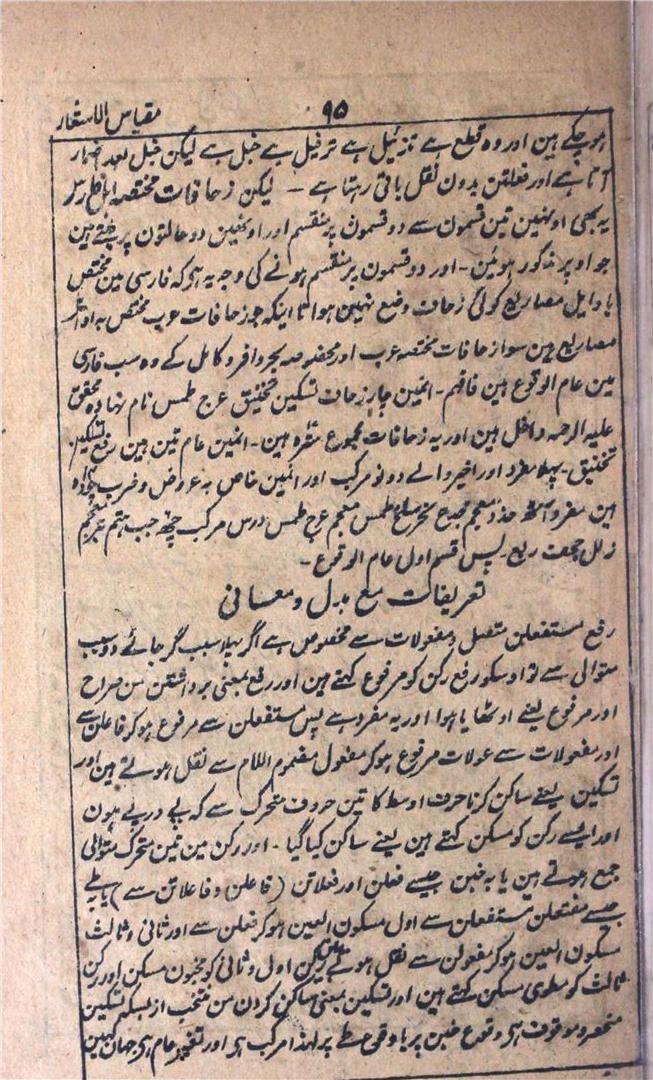 مقیاس الاشعار
۹۵
ہو چکے ہین اور وہ قطع ہے تذئیل ہے ترفیل ہے خبل ہے لیکن خبل بعد اضمار
آتا ہے اور فعلتن بدون نقل باقی رہتا ہے - لیکن زحافات مختصہ
یہ بھی اونہین تین قسمون سے دو قسمون پر منقسم اور اونھین دو حالتون پر رکھتے ہین
جو اوپر مذکور ہوئین - اور دو قسمون پر منقسم ہونے کی وجہ یہ ہی کہ فارسی مین مختص
با وایل مصاریع کوئی زحاف وضع نہین ہوا تا اینکہ جو زحافات عرب مختص بہ اواخر
مصاریع ہین سوا زحافات مختصہ عرب اور مخصوصہ بحر وافر و کامل کے وہ سب فارسی
مین عام الوقوع ہین فافہم - انمین چار زحاف تسکین تخنیق عرج طمس نام نہادہ محقق
علیہ الرحمہ داخل ہین اور یہ زحافات مجموع سترہ ہین - انمین عام تین ہین رفع تسکین
تخنیق - پہلا مفرد اور اخیر والے دونو مرکب اور انمین خاص بہ عروض و ضرب چودہ
ہین مفرد آٹھ حذذ جحف نحر سلخ طمس عرج طمس درس مرکب چھ جب ہتم
زلل جحف ربع پس قسم اول عام الوقوع -
تعریفات مع بدل و معانی
رفع مستفعلن متصل و مفعولات سے مخصوص ہے اگر پہلا سبب گر جائے دو سبب
متوالی سے تو اوسکو رفع رکن کو مرفوع کہتے ہین اور رفع بمعنی برداشتن من صراح
اور مرفوع یعنے اوٹھایا ہوا اور یہ مفرد ہے پس مستفعلن سے مرفوع ہوکر فاعلن سے
اور مفعولات سے عولات مرفوع ہوکر مفعول مضموم اللام سے نقل ہوتے ہین اور
تسکین یعنے ساکن کرنا حرف اوسط کا تین حروف متحرک سے کہ پے در پے ہون
اور ایسے رکن کو مسکن کہتے ہین یعنے ساکن کیا گیا - اور رکن مین تین متحرک متوالی
جمع ہوتے ہین یا بہ خبن جیسے فعلن اور فعلاتن (فاعلن و فاعلاتن سے) یا بہ طے
جیسے مفتعلن مستفعلن سے اول مسکون العین ہوکر فعلن سے اور ثانی و ثالث
مسکون العین ہوکر مفعولن سے نقل ہوتے ہین لیکن اول و ثانی کو مخبون مسکن اور رکن
ثالث کو مطوی مسکن کہتے ہین اور تسکین بمعنی ساکن کردن من منتخب از بسکہ تسکین
منحصر و موقوف ہی وقوع خبن پر یا وقوع طے پر لہذا مرکب ہی اور تغیر عام ہی جہان کہین